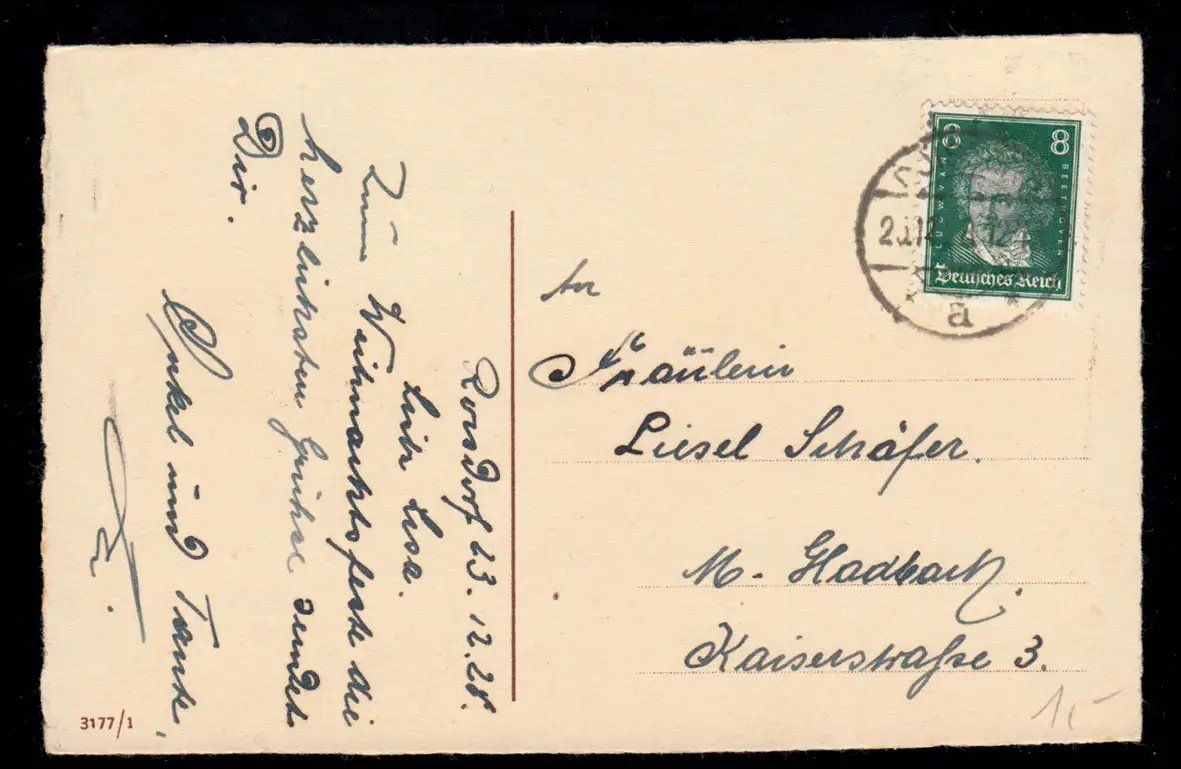 Ronsdorf 23.12.28.
Liebe Lisa.
Zum Weihnachtsfeste die
herzlichsten Grüße sendet
Dir.
Onkel und Tante,
8 8
LUDWIG VAN BEETHOVEN
Deutsches Reich
a
An
Fräulein
Liesel Schäfer.
M. Gladbach.
Kaiserstraße 3.
3177/1
1,-